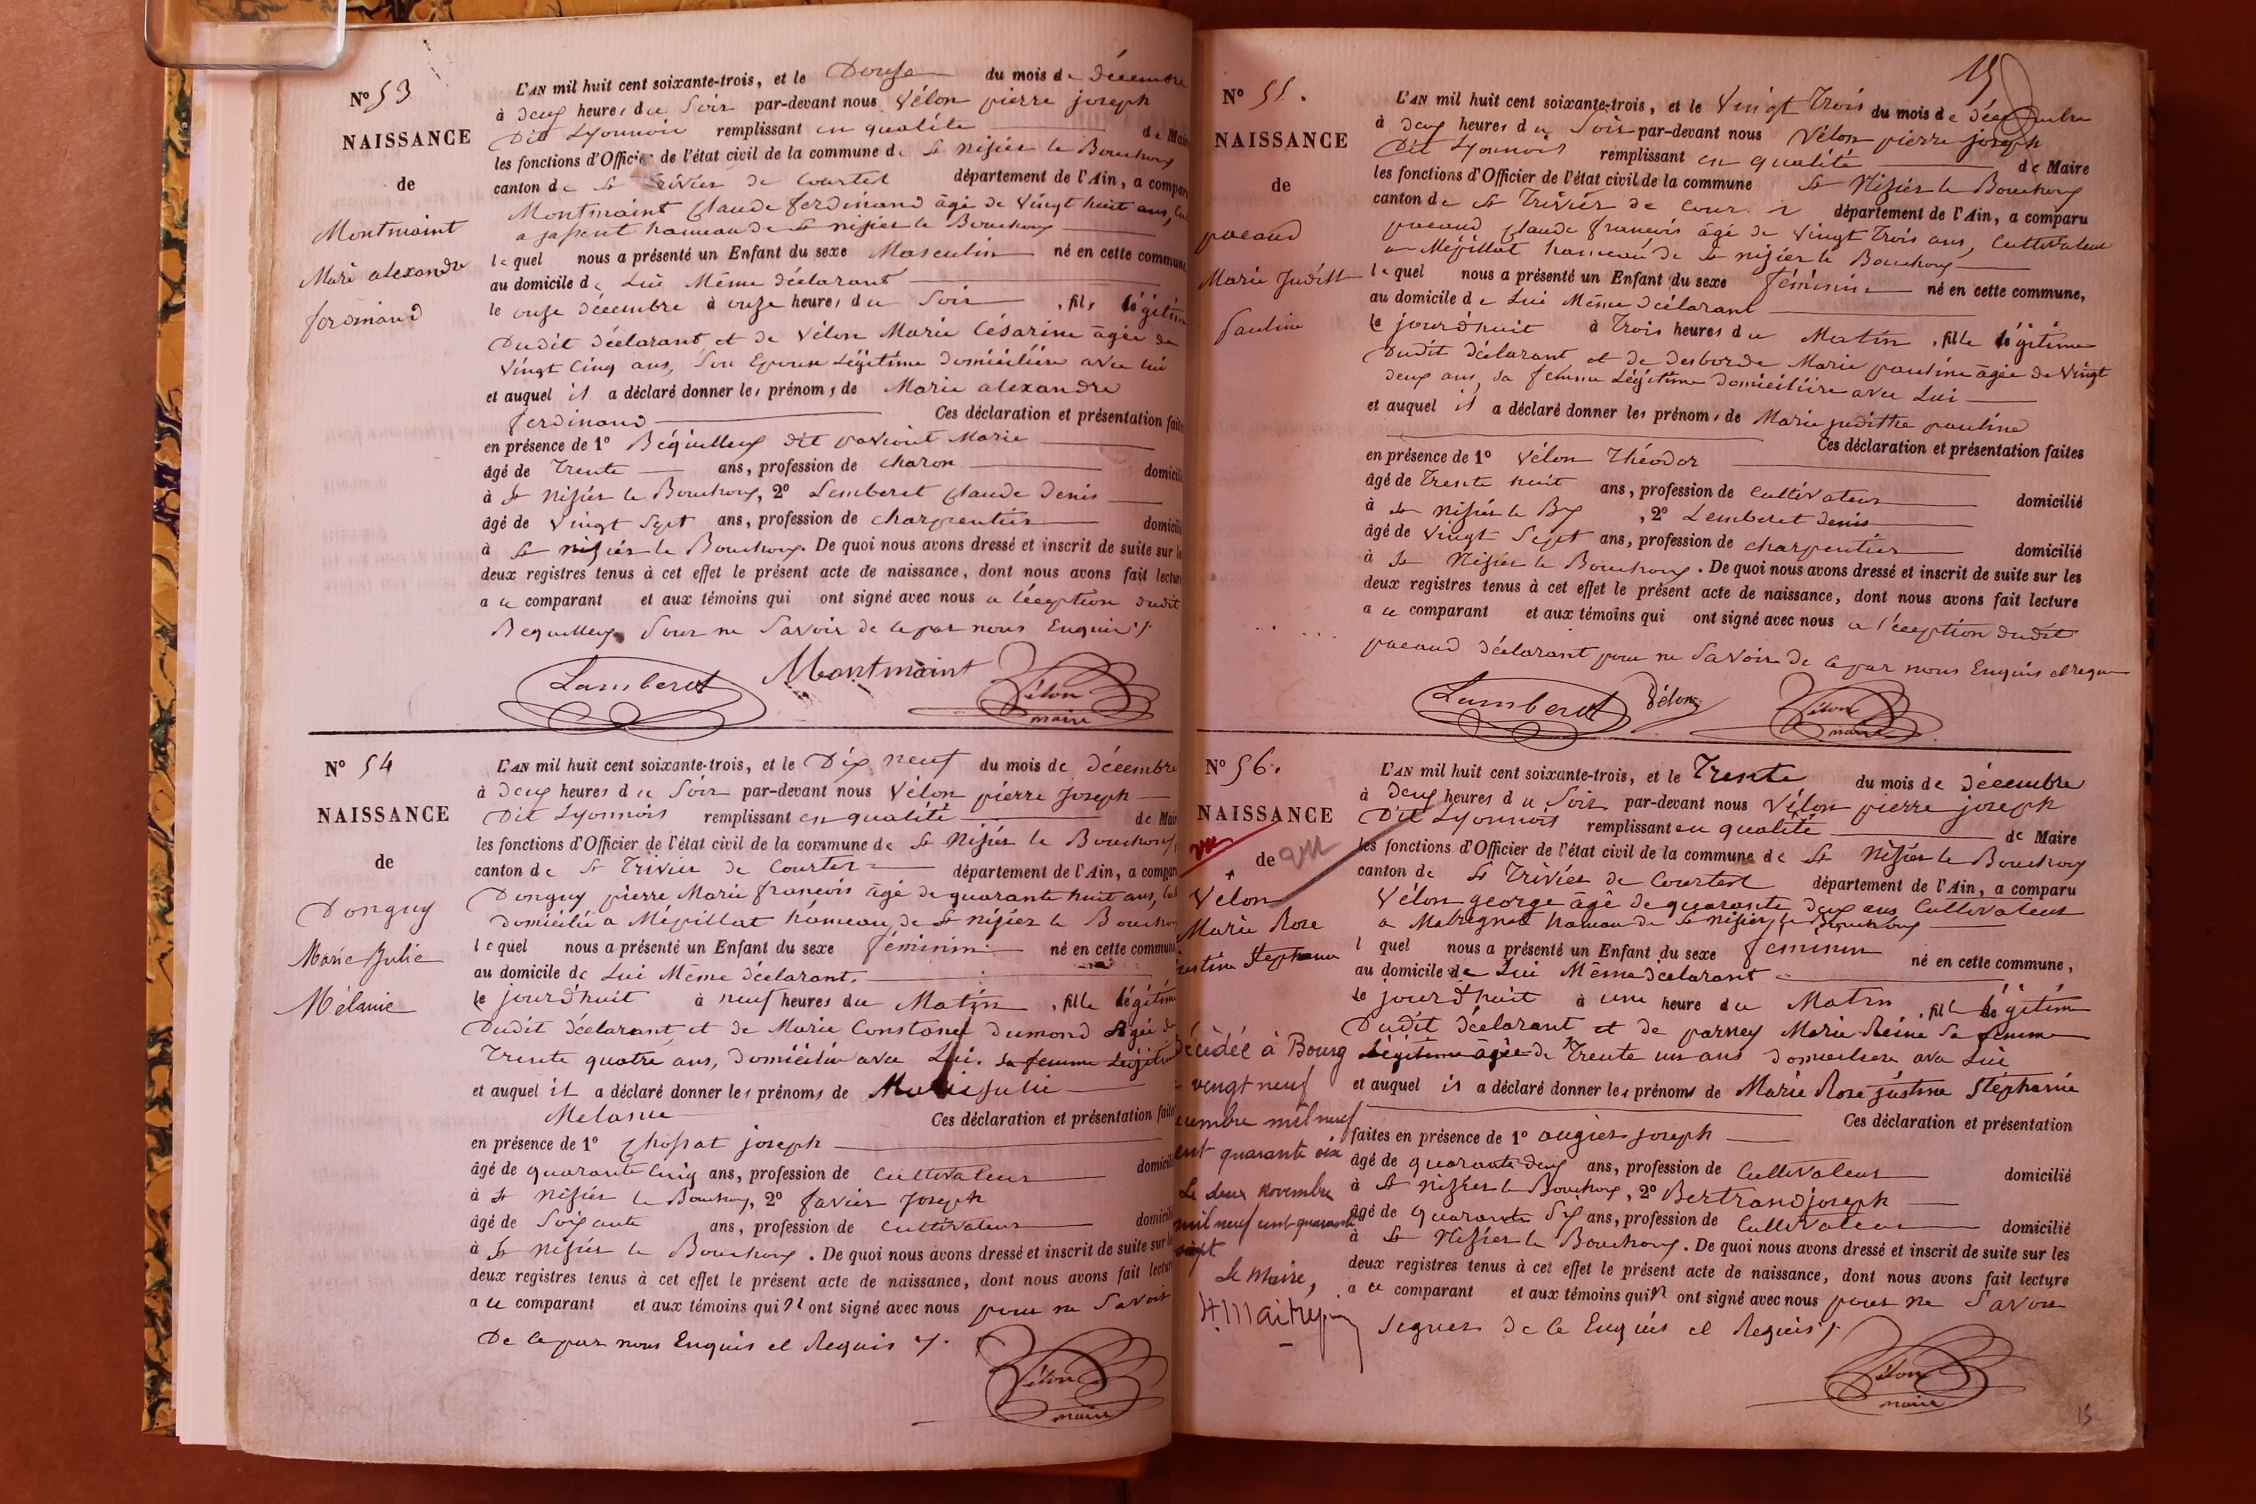 N° 53
NAISSANCE
de
Montmaint
Marie alexandre
ferdinand
L'AN mil huit cent soixante-trois, et le Douze du mois de décembre
à deux heures du Soir par-devant nous Vélon pierre joseph
Dit Lyonnois remplissant en qualité de Maire
les fonctions d'Officier de l'état civil de la commune de St Nizier le Bouchoux
canton de St Trivier de Courtes département de l'Ain, a comparu
Montmaint Claude ferdinand âgé de Vingt huit ans,
a hameau de St nizier le Bouchoux
lequel nous a présenté un Enfant du sexe Masculin né en cette commune
au domicile de Lui Même déclarant
le onze décembre à onze heures du Soir, fils légitime
Dudit déclarant et de Vélon Marie Césarine âgée de
Vingt Cinq ans, Son Epouse Légitime domiciliée avec lui
et auquel il a déclaré donner les prénoms de Marie alexandre
ferdinand Ces déclaration et présentation faites
en présence de 1° Béquilleux dit Marie
âgé de Trente ans, profession de charon domicilié
à St Nizier le Bouchoux, 2° Lemberet Claude Denis
âgé de Vingt Sept ans, profession de charpentier domicilié
à St nizier le Bouchoux. De quoi nous avons dressé et inscrit de suite sur les
deux registres tenus à cet effet le présent acte de naissance, dont nous avons fait lecture
a ce comparant et aux témoins qui ont signé avec nous a l'éception dudit
Bequilleux pour ne Savoir de ce par nous Enquis
Lamberet Montmaint Vélon
maire
N° 54
NAISSANCE
de
Donguy
Marie Julie
Mélanie
L'AN mil huit cent soixante-trois, et le Dix neuf du mois de décembre
à deux heures du Soir par-devant nous Vélon pierre Joseph
Dit Lyonnois remplissant en qualité de Maire
les fonctions d'Officier de l'état civil de la commune de St Nizier le Bouchoux
canton de St Trivier de Courtes département de l'Ain, a comparu
Donguy pierre Marie francois âgé de quarante huit ans,
Domicilié a Mépillat hameau de St nizier le Bouchoux
lequel nous a présenté un Enfant du sexe féminin né en cette commune
au domicile de Lui Même déclarant.
le jourd'huit à neuf heures du Matin, fille légitime
Dudit déclarant et de Marie Constance Dumond Agée de
Trente quatre ans, domiciliée avec Lui. sa femme Légitime
et auquel il a déclaré donner les prénoms de Marie Julie
Mélanie Ces déclaration et présentation faites
en présence de 1° Chossat joseph
âgé de quarante Cinq ans, profession de Cultivateur domicilié
à St Nizier le Bouchoux, 2° favier Joseph
âgé de Soixante ans, profession de Cultivateur domicilié
à St Nizier le Bouchoux. De quoi nous avons dressé et inscrit de suite sur les
deux registres tenus à cet effet le présent acte de naissance, dont nous avons fait lecture
a ce comparant et aux témoins qui n'ont signé avec nous pour ne Savoir
De ce par nous Enquis et Requis
Vélon
maire
15
N° 55.
NAISSANCE
de
pacaud
Marie Judith
Pauline
L'AN mil huit cent soixante-trois, et le Vingt Trois du mois de décembre
à deux heures du Soir par-devant nous Vélon pierre joseph
Dit Lyonnois remplissant en qualité de Maire
les fonctions d'Officier de l'état civil de la commune St Nizier le Bouchoux
canton de St Trivier de Cour département de l'Ain, a comparu
pacaud Claude francois âgé de Vingt Trois ans, Cultivateur
a Mépillat hameau de St nizier le Bouchoux
lequel nous a présenté un Enfant du sexe féminin né en cette commune,
au domicile de Lui Même déclarant
le jourd'huit à Trois heures du Matin, fille légitime
Dudit déclarant et de Desborde Marie pauline âgée de Vingt
deux ans, sa femme Légitime Domiciliée avec Lui
et auquel il a déclaré donner les prénoms de Marie judithe pauline
Ces déclaration et présentation faites
en présence de 1° Vélon Théodor
âgé de Trente huit ans, profession de Cultivateur domicilié
à St nizier le Bx, 2° Lemberet denis
âgé de Vingt Sept ans, profession de charpentier domicilié
à St Nizier le Bouchoux. De quoi nous avons dressé et inscrit de suite sur les
deux registres tenus à cet effet le présent acte de naissance, dont nous avons fait lecture
a ce comparant et aux témoins qui ont signé avec nous a l'éception dudit
pacaud déclarant pour ne Savoir de ce par nous Enquis et requis
Lamberet Vélon Vélon
maire
N° 56.
NAISSANCE
vu
de vu
Vélon
Marie Rose
Justine Stephanie
Décédée à Bourg
vingt neuf
mil neuf
cent quarante six
Le deux novembre
mil neuf cent quarante
sept
Le Maire,
L'AN mil huit cent soixante-trois, et le Trente du mois de décembre
à deux heures du Soir par-devant nous Vélon pierre joseph
Dit Lyonnois remplissant en qualité de Maire
les fonctions d'Officier de l'état civil de la commune de St Nizier le Bouchoux
canton de St Trivier de Courtes département de l'Ain, a comparu
Vélon george âgé de quarante deux ans Cultivateur
a hameau de St nizier le Bouchoux
l quel nous a présenté un Enfant du sexe feminin né en cette commune,
au domicile de Lui Même déclarant
le jourd'huit à une heure du Matin, fille légitime
Dudit déclarant et de parney Marie Reine Sa femme
Légitime âgée de Trente un ans domiciliée avec Lui
et auquel il a déclaré donner les prénoms de Marie Rose justine Stéphanie
Ces déclaration et présentation
faites en présence de 1° augier joseph
âgé de quarante deux ans, profession de Cultivateur domicilié
à St Nizier le Bouchoux, 2° Bertrand joseph
âgé de quarante Six ans, profession de Cultivateur domicilié
à St Nizier le Bouchoux. De quoi nous avons dressé et inscrit de suite sur les
deux registres tenus à cet effet le présent acte de naissance, dont nous avons fait lecture
a ce comparant et aux témoins qui n ont signé avec nous pour ne Savoir
signer de ce Enquis et Requis
Vélon
maire
15